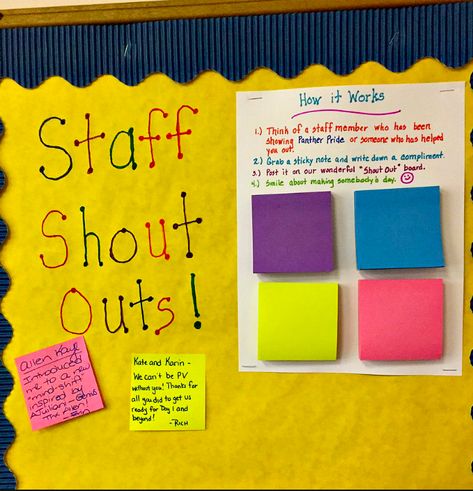 Staff
Shout
Outs!
How it Works
1.) Think of a staff member who has been
showing Panther Pride or someone who has helped
you out!
2.) Grab a sticky note and write down a compliment.
3.) Post it on our wonderful "Shout Out" board.
4.) Smile about making somebody's day.
Introduced
me to a new
"mind-shift"
inspired by
Kate and Karin -
We can't be PV
without you! Thanks for
all you did to get us
ready for Day 1 and
beyond!
-Rich